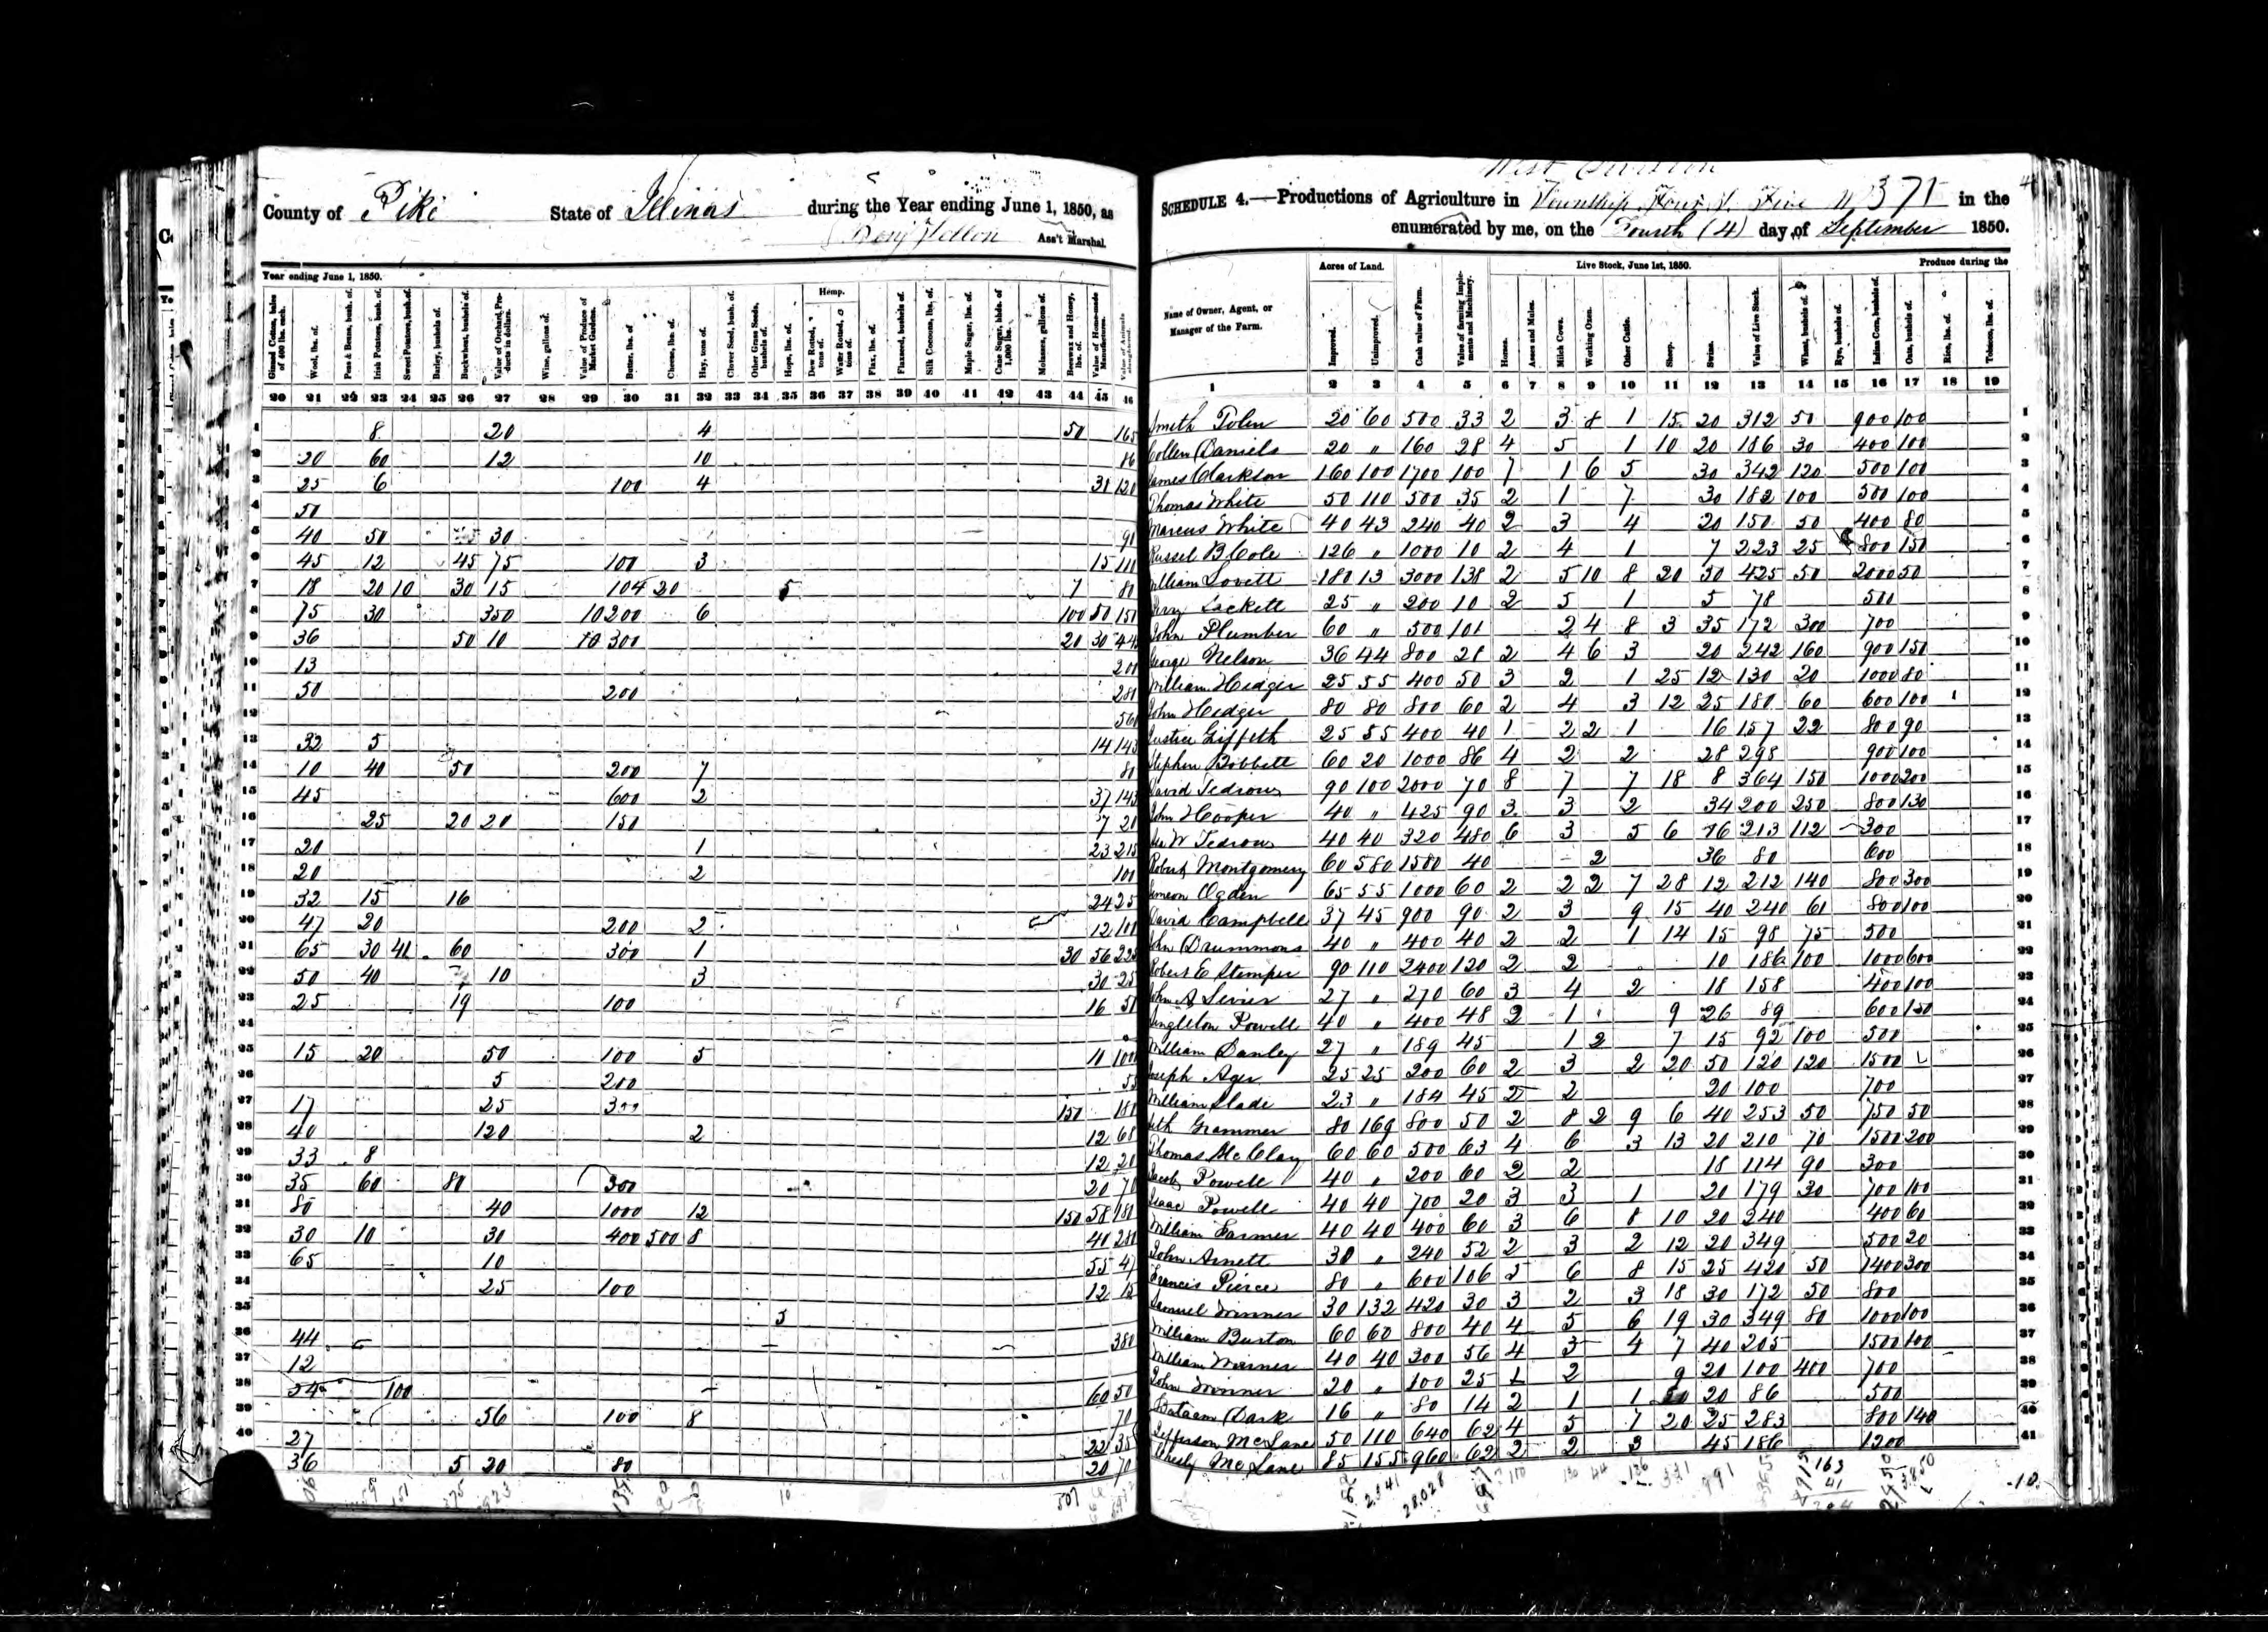 County of Pike State of Illinois during the Year ending June 1, 1850, as
Ass't Marshal.
Year ending June 1, 1850.
Hemp.
Ginned Cotton, bales of 400 lbs. each. Wool, lbs. of. Peas & Beans, bush. of. Irish Potatoes, bush. of. Sweet Potatoes, bush. of. Barley, bushels of. Buckwheat, bushels of. Value of Orchard Products in dollars. Wine, gallons of. Value of Produce of Market Gardens. Butter, lbs. of Cheese, lbs. of. Hay, tons of. Clover Seed, bush. of. Other Grass Seeds, bushels of. Hops, lbs. of. Dew Rotted, tons of. Water Rotted, tons of. Flax, lbs. of. Flaxseed, bushels of. Silk Cocoons, lbs. of. Maple Sugar, lbs. of. Cane Sugar, hhds. of 1,000 lbs. Molasses, gallons of. Beeswax and Honey, lbs. of. Value of Home-made Manufactures. Value of Animals slaughtered.
20 21 22 23 24 25 26 27 28 29 30 31 32 33 34 35 36 37 38 39 40 41 42 43 44 45 46
1 8 20 4 50 165
2 20 60 12 10 86
3 25 6 100 4 31 120
4 50
5 40 50 30 91
6 45 12 45 75 100 3 15 111
7 18 20 10 30 15 104 20 5 7 80
8 75 30 350 10 200 6 100 50 151
9 36 50 10 10 300 20 30 44
10 13 200
11 50 200 280
12 560
13 32 5 14 143
14 10 40 50 200 7 80
15 45 600 2 37 143
16 25 20 20 150 7 20
17 20 1 23 215
18 20 2 100
19 32 15 16 24 25
20 47 20 200 2 12 100
21 65 30 41 60 300 1 30 56 222
22 50 40 10 3 30 25
23 25 19 100 16 51
24
25 15 20 50 100 5 11 100
26 5 200 53
27 17 25 300 150 180
28 40 120 2 12 68
29 33 8 12 20
30 35 60 80 300 20 70
31 80 40 1000 12 150 58 180
32 30 10 30 400 500 8 40 280
33 65 10 55 47
34 25 100 12 15
35 5
36 44 380
37 12
38 54 100 60 50
39 56 100 8 70
40 27 22 35
36 5 20 80 20 70
507
West Division
SCHEDULE 4.—Productions of Agriculture in Township Four S. Five W 371 in the
enumerated by me, on the Fourth (4) day of September 1850.
Acres of Land. Live Stock, June 1st, 1850. Produce during the
Name of Owner, Agent, or Manager of the Farm. Improved. Unimproved. Cash value of Farm. Value of farming Implements and Machinery. Horses. Asses and Mules. Milch Cows. Working Oxen. Other Cattle. Sheep. Swine. Value of Live Stock. Wheat, bushels of. Rye, bushels of. Indian Corn, bushels of. Oats, bushels of. Rice, lbs. of. Tobacco, lbs. of.
1 2 3 4 5 6 7 8 9 10 11 12 13 14 15 16 17 18 19
Smith Tolen 20 60 500 33 2 3 8 1 15 20 312 50 900 100 1
Collen Daniels 20 " 160 28 4 5 1 10 20 186 30 400 100 2
James Clarkson 160 100 1700 100 7 1 6 5 30 342 120 500 100 3
Thomas White 50 110 500 35 2 1 7 30 182 100 500 100 4
Marcus White 40 43 240 40 2 3 4 20 150 50 400 80 5
Russel B Cole 126 " 1000 10 2 4 1 7 223 25 800 150 6
William Lovett 180 13 3000 138 2 5 10 8 20 30 425 50 2000 50 7
Lackett 25 " 200 10 2 5 1 5 78 500 8
John Plumber 60 " 500 101 2 4 8 3 35 172 300 700 9
George Nelson 36 44 800 28 2 4 6 3 20 242 160 900 150 10
William Hedger 25 55 400 50 3 2 1 25 12 130 20 1000 80 11
John Hedger 80 80 800 60 2 4 3 12 25 180 60 600 100 12
Justice Giffeth 25 55 400 40 1 2 2 1 16 157 22 800 90 13
Stephen Bobbett 60 20 1000 86 4 2 2 28 298 900 100 14
David Tedrow 90 100 2000 70 8 7 7 18 8 364 150 1000 200 15
John Hooper 40 " 425 90 3 3 2 34 200 250 800 130 16
W Tedrow 40 40 320 480 6 3 5 6 16 213 112 300 17
Robert Montgomery 60 580 1580 40 2 36 80 600 18
Simeon Ogden 65 55 1000 60 2 2 2 7 28 12 212 140 800 300 19
David Campbell 37 45 900 90 2 3 9 15 40 240 61 800 100 20
John Drummons 40 " 400 40 2 2 1 14 15 98 75 500 21
Robert E Stemper 90 110 2400 120 2 2 10 186 100 1000 600 22
John A Sevier 27 " 270 60 3 4 2 18 158 400 100 23
Singleton Powell 40 " 400 48 2 1 9 26 89 600 150 24
William Danley 27 " 189 45 1 2 7 15 92 100 500 25
Joseph Ager 25 25 200 60 2 3 2 20 50 120 120 1500 26
William Slade 23 " 184 45 2 2 20 100 700 27
Seth Grammer 80 169 800 50 2 8 2 9 6 40 253 50 750 50 28
Thomas McClay 60 60 500 63 4 6 3 13 20 210 70 1500 200 29
Jacob Powell 40 " 200 60 2 2 18 114 90 300 30
Isaac Powell 40 40 700 20 3 3 1 20 179 30 700 100 31
William Farmer 40 40 400 60 3 6 8 10 20 240 400 60 32
John Arnett 30 " 240 52 2 3 2 12 20 349 500 20 33
Francis Pierce 80 " 600 106 5 6 8 15 25 420 50 1400 300 34
Samuel Winner 30 132 420 30 3 2 3 18 30 172 50 800 35
William Burton 60 60 800 40 4 5 6 19 30 349 80 1000 100 36
William Winner 40 40 300 56 4 3 4 7 40 205 1500 100 37
John Winner 20 " 100 25 1 2 9 20 100 400 700 38
Dark 16 " 80 14 2 1 1 20 86 500 39
Jefferson McLane 50 110 640 62 4 5 7 20 25 283 800 140 40
McLane 85 155 960 62 2 2 3 45 186 1200 41
2341 28,028 110 130 44 136 331 991 163
41